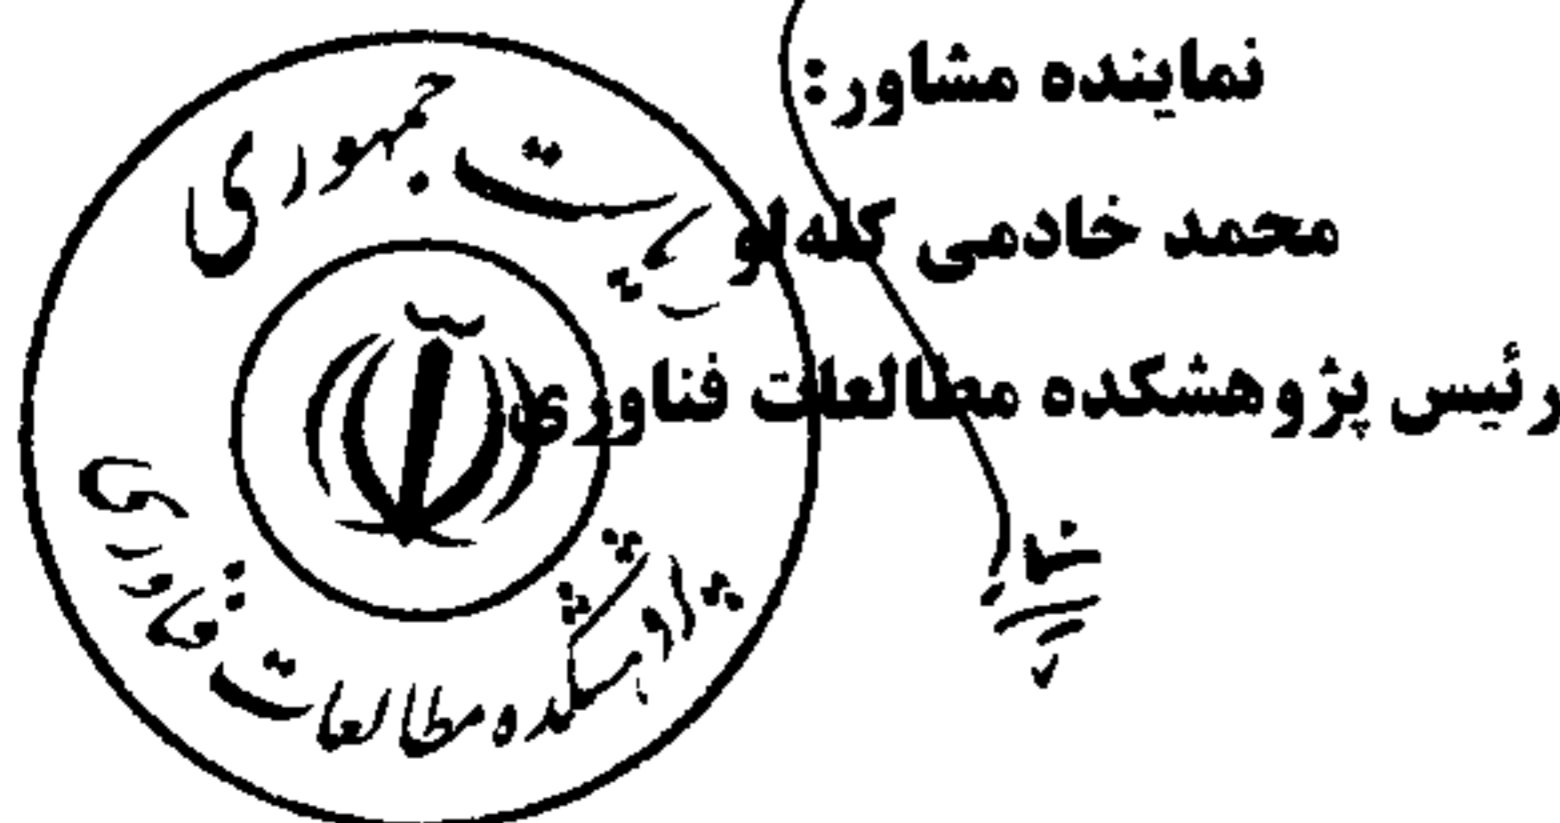 نماینده مشاور:
محمد خادمی کله‌لو
رئیس پژوهشکده مطالعات فناوری
ریاست جمهوری
پژوهشکده مطالعات فناوری